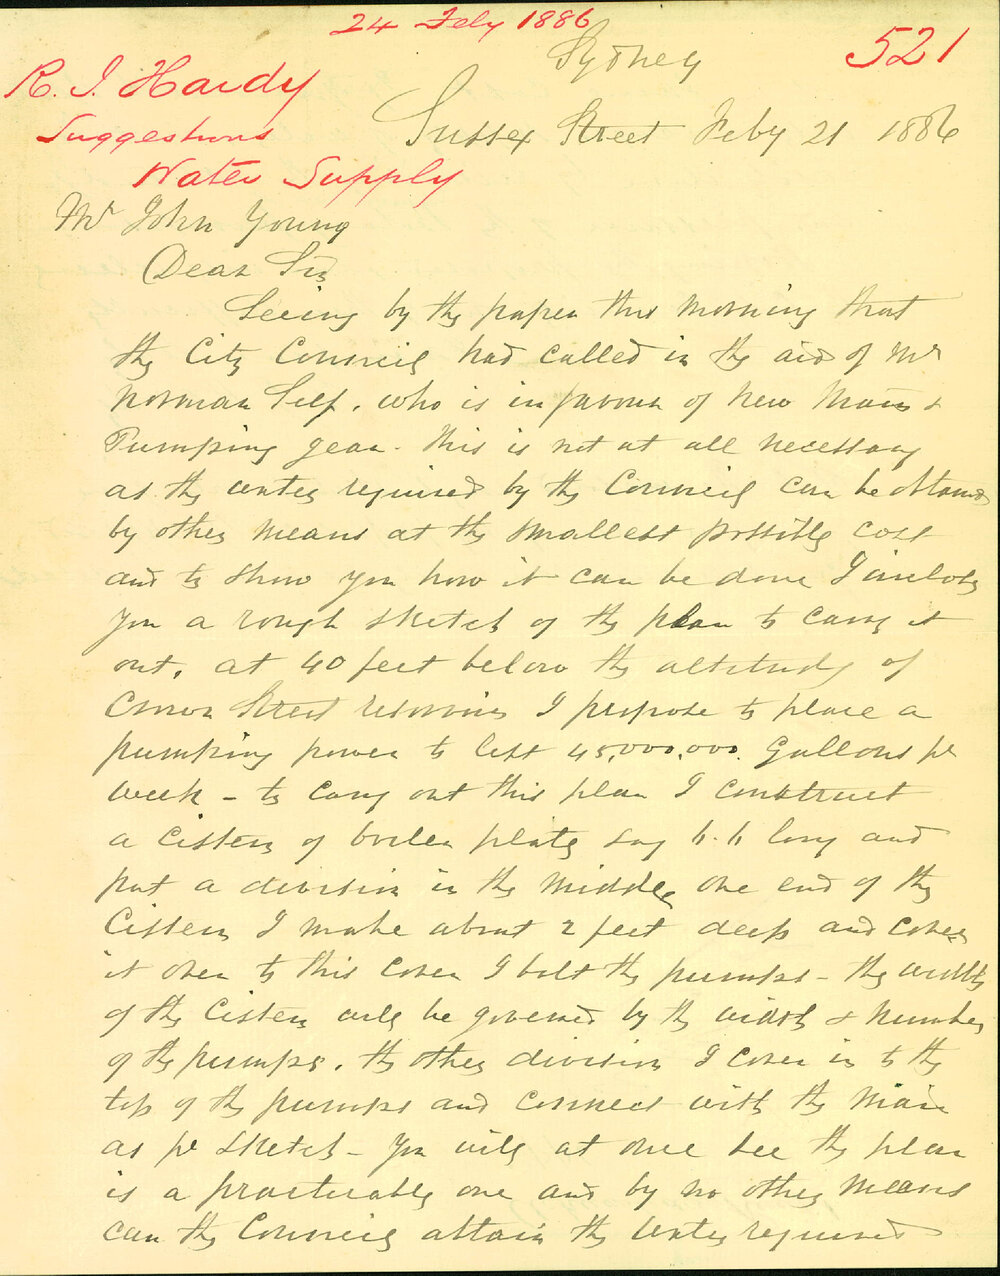 24 Feby 1886
521
R. J. Hardy
Suggestions
Water Supply
Sydney
Sussex Street Feby 21 1886
Mr John Young
Dear Sir
Seeing by the paper this morning that
the City Council had called in the aid of Mr
Norman Self. who is in favour of New Mains &
Pumping gear. this is not at all necessary
as the water required by the Council can be obtained
by other means at the smallest possible cost
and to show you how it can be done I inclose
you a rough sketch of the plan to carry it
out, at 40 feet below the altitude of
Crown Street reservoir I propose to place a
pumping power to lift 45,000,000. Gallons pr
week – to carry out this plan I construct
a cistern of boiler plate say long and
put a division in the middle one end of the
Cistern I make about 2 feet deep and cover
it over to this cover I bolt the pumps – the width
of the Cistern will be governed by the width & number
of the pumps. the other division I cover in to the
top of the pumps and connect with the Main
as pr sketch – You will at once see the plan
is a practicable one and by no other means
can the Council attain the water required